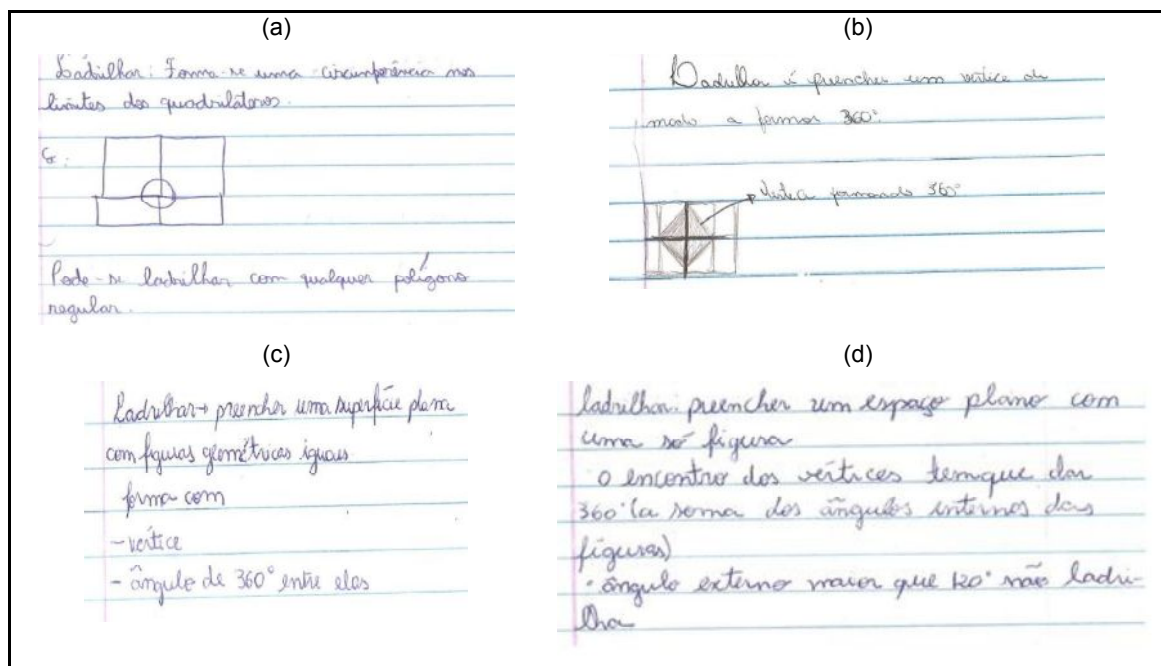 (a)
Ladrilhar: Forma-se uma circunferência nos
limites dos quadriláteros.
Pode-se ladrilhar com qualquer polígono
regular.
(b)
Ladrilha é preencher um vértice de
modo a formar 360°.
vértice formando 360°
(c)
Ladrilhar→ preencher uma superfície plana
com figuras geométricas iguais
forma com
- vértice
- ângulo de 360° entre elas
(d)
ladrilhar: preencher um espaço plano com
uma só figura
o encontro dos vértices tem que dar
360° (a soma dos ângulos internos das
figuras)
• ângulo externo maior que 120° não ladri-
lha